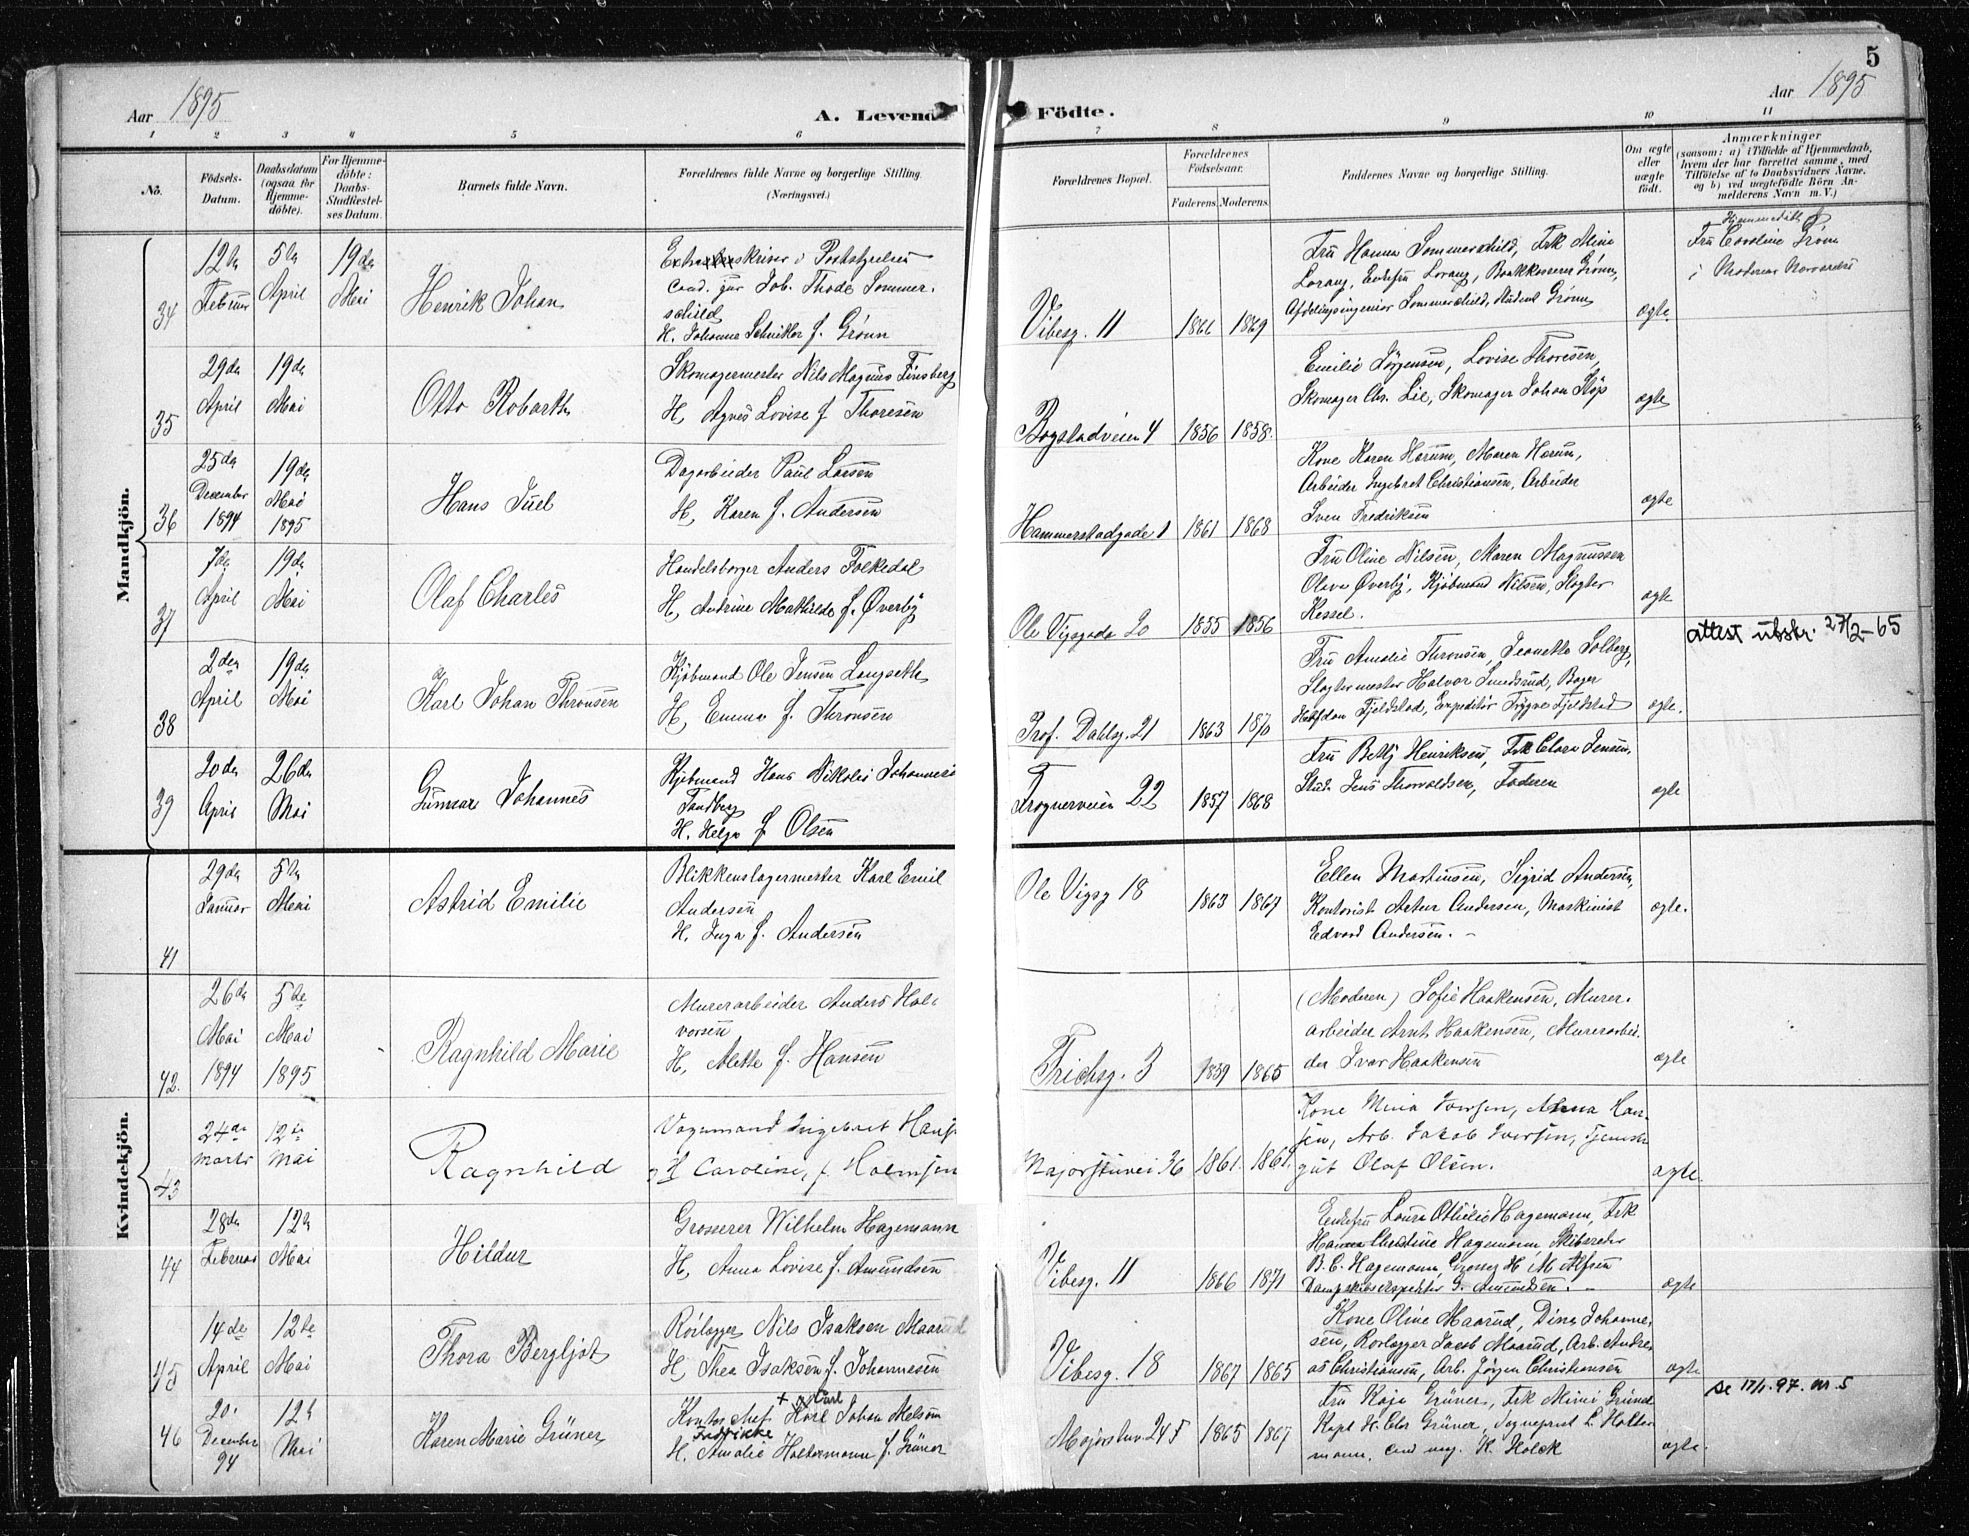 5
Aar 1895
A. Levende Födte.
Aar 1895
1 2 3 4 5 6 7 8 9 10 11
No.
Födsels-
Datum.
Daabsdatum
(ogsaa for
Hjemme-
döbte).
For Hjemme-
döbte:
Daabs-
Stadfæstel-
ses Datum.
Barnets fulde Navn.
Forældrenes fulde Navne og borgerlige Stilling.
(Næringsvei.)
Forældrenes Bopæl.
Forældrenes
Födselsaar.
Faderens. Moderens.
Faddernes Navne og borgerlige Stilling.
Om ægte
eller
uægte
födt.
Anmærkninger
(saasom: a) i Tilfælde af Hjemmedaab,
hvem der har forrettet samme, med
Tilföielse af to Daabsvidners Navne.
og b) ved uægtefödte Börn An-
melderens Navn m. V.)
Mandkjön.
34
12te
Februar
5te
April
19de
Mai
Henrik Johan
skriver i Poststyrelsen
cand. jur Job. Thode Sommer-
schild
H. Johanne f. Grønn
Vibesg. 11
1866 1869
Fru Hanna Sommerschild, Frk Mimi
Lorang, Enkefru Lorang, Grønn,
Afdelingsingeniør Sommerschild, Student Grønn
ægte
Hjemmedøbt af
Fru Caroline Grønn
i Moderens Nærværelse
35
29de
April
19de
Mai
Otto Robarth
Skomagermester Nils Magnus Finsberg
H. Agnes Lovise f. Thoresen
Bogstadveien 4
1856 1858.
Emilie Jørgensen, Lovise Thoresen,
Skomager Chr. Lie, Skomager Johan
ægte
36
25de
December
1894
19de
Mai
1895
Hans Juel
Dagarbeider Paul Larsen
H. Karen f. Andersen
Hammerstadgade 1
1861 1868
Kone Karen Hærum, Maren Hærum,
Arbeider Ingebret Christiansen, Arbeider
Sven Fredriksen
ægte
37
7de
April
19de
Mai
Olaf Charles
Handelsborger Anders Folkedal
H. Andrine Mathilde f. Øverby
Ole Vigsgade 20
1855 1856
Fru Oline Nilsen, Maren Magnussen
Olava Øverby, Kjøbmand Nilsen, Slagter
Kessel.
ægte
attest utskr. 27/2-65
38
2den
April
19de
Mai
Karl Johan Thronsen
Kjøbmand Ole Jensen Langseth
H. Emma f. Thronsen
Prof. Dahlsg. 21
1863 1870
Fru Amalie Thronsen, Jeanette Solberg,
Slagtermester Halvor Sundsrud, Bager
Halfdan Fjeldstad, Expeditør Trygve Fjeldstad
ægte.
39
20de
April
26de
Mai
Gunnar Johannes
Kjøbmand Hans Nikolai Johannes
Tandberg
H. Helga f. Olsen
Frognerveien 22
1857 1868
Fru Betty Henriksen, Frk Clara Jensen,
Stud. Jens Thorvaldsen, Faderen
ægte
Kvindekjön.
41
29de
Januar
5te
Mai
Astrid Emilie
Blikkenslagermester Karl Emil
Andersen
H. Inga f. Andersen
Ole Vigsg 18
1863 1867
Ellen Martinsen, Sigrid Andersen,
Kontorist Artur Andersen, Maskinist
Edvard Andersen.
ægte.
42.
26de
Mai
1894
5te
Mai
1895
Ragnhild Marie
Murerarbeider Anders Hal-
vorsen
H. Mette f. Hansen
Frichsg. 3
1859 1865
(Moderen) Sofie Haakensen, Murer-
arbeider Arnt Haakensen, Murerarbei-
der Ivar Haakensen
ægte
43
24de
Marts
12te
Mai
Ragnhild
Vognmand Ingebret Hans
H Caroline, f. Holmsen
Majorstuvei 36
1861. 1861.
Kone Mina Iversen, Anna Han-
sen, Arb. Jakob Iversen, Tjeneste-
gut Olaf Olsen.
ægte.
44
28de
Februar
12te
Mai
Hildur
Grosserer Wilhelm Hagemann
H. Anna Lovise f. Amundsen
Vibesg. 11
1866 1871
Enkefru Laura Ottilie Hagemann, Frk
Hanna Christine Hagemann, Skibsreder
B.C. Hagemann, Grosserer H. M. Alfsen
Dampskibsexpeditør G. Amundsen.
ægte
45
14de
April
12te
Mai
Thora Bergljot
Rørlegger Nils Isaksen Maarud
H. Thea Isaksen f. Johannesen
Vibesg. 18
1867 1865
Kone Oline Maarud, Dina Johanne-
sen, Rørlegger Jacob Maarud, Arb. Andre-
as Christiansen, Arb. Jørgen Christiansen
ægte
46
20.
December
94
12te
Mai
Karen Marie Grüner
Carl
Kontorchef Karl Johan Melsom
Fredrikke
H. Amalie Holtermann f. Grüner
Majorstuv. 24 F
1865 1867
Fru Kaja Grüner, Frk Mimi Grüner
Kapt H. Chr Grüner, Sogneprest L. Holter-
mann, cand. K. Holck
ægte.
se 17/1. 97. nr. 5